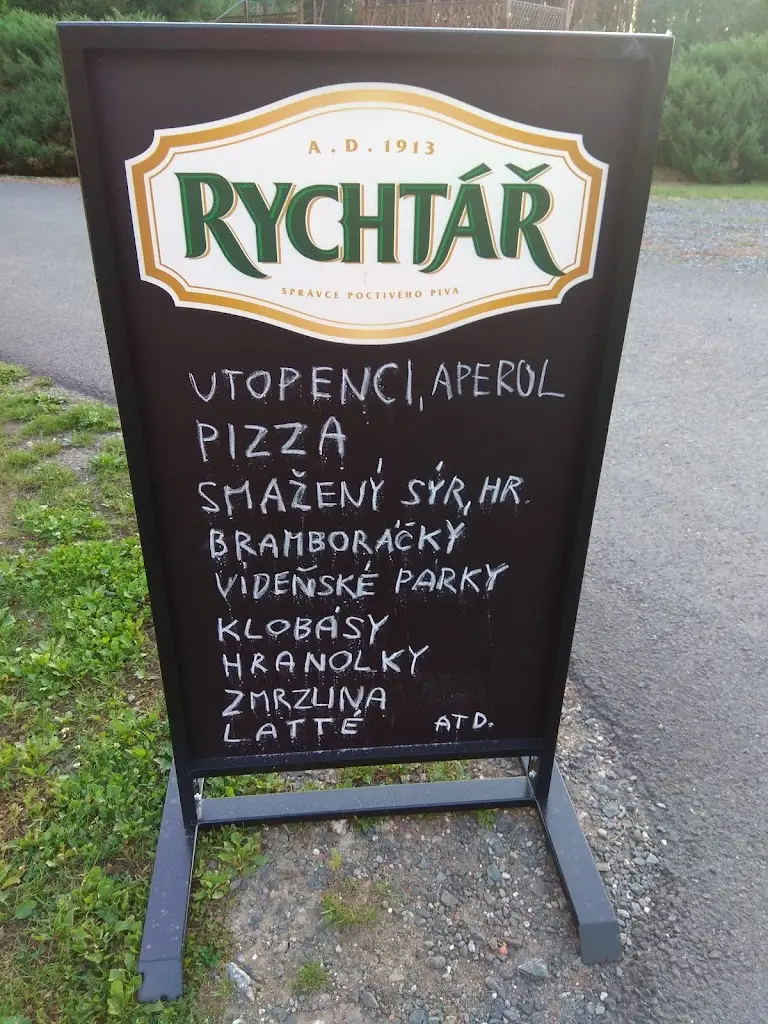 A.D. 1913
RYCHTÁŘ
SPRÁVCE POCTIVÉHO PIVA
UTOPENCI, APEROL
PIZZA
SMAŽENÝ SÝR, HR.
BRAMBORÁČKY
VÍDEŇSKÉ PÁRKY
KLOBÁSY
HRANOLKY
ZMRZLINA
LATTÉ ATD.